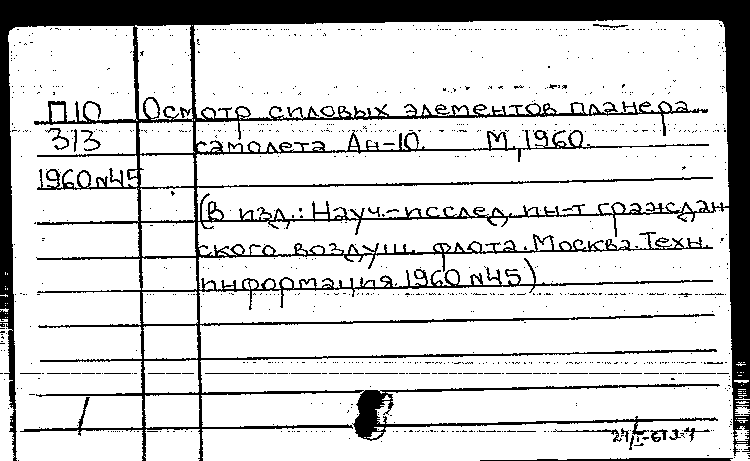 П10 Осмотр силовых элементов планера
313 самолета Ан-10. М, 1960.
1960 N45
(В изд.: Науч.-исслед. ин-т граждан-
ского воздуш. флота. Москва. Техн.
информация 1960 N45)